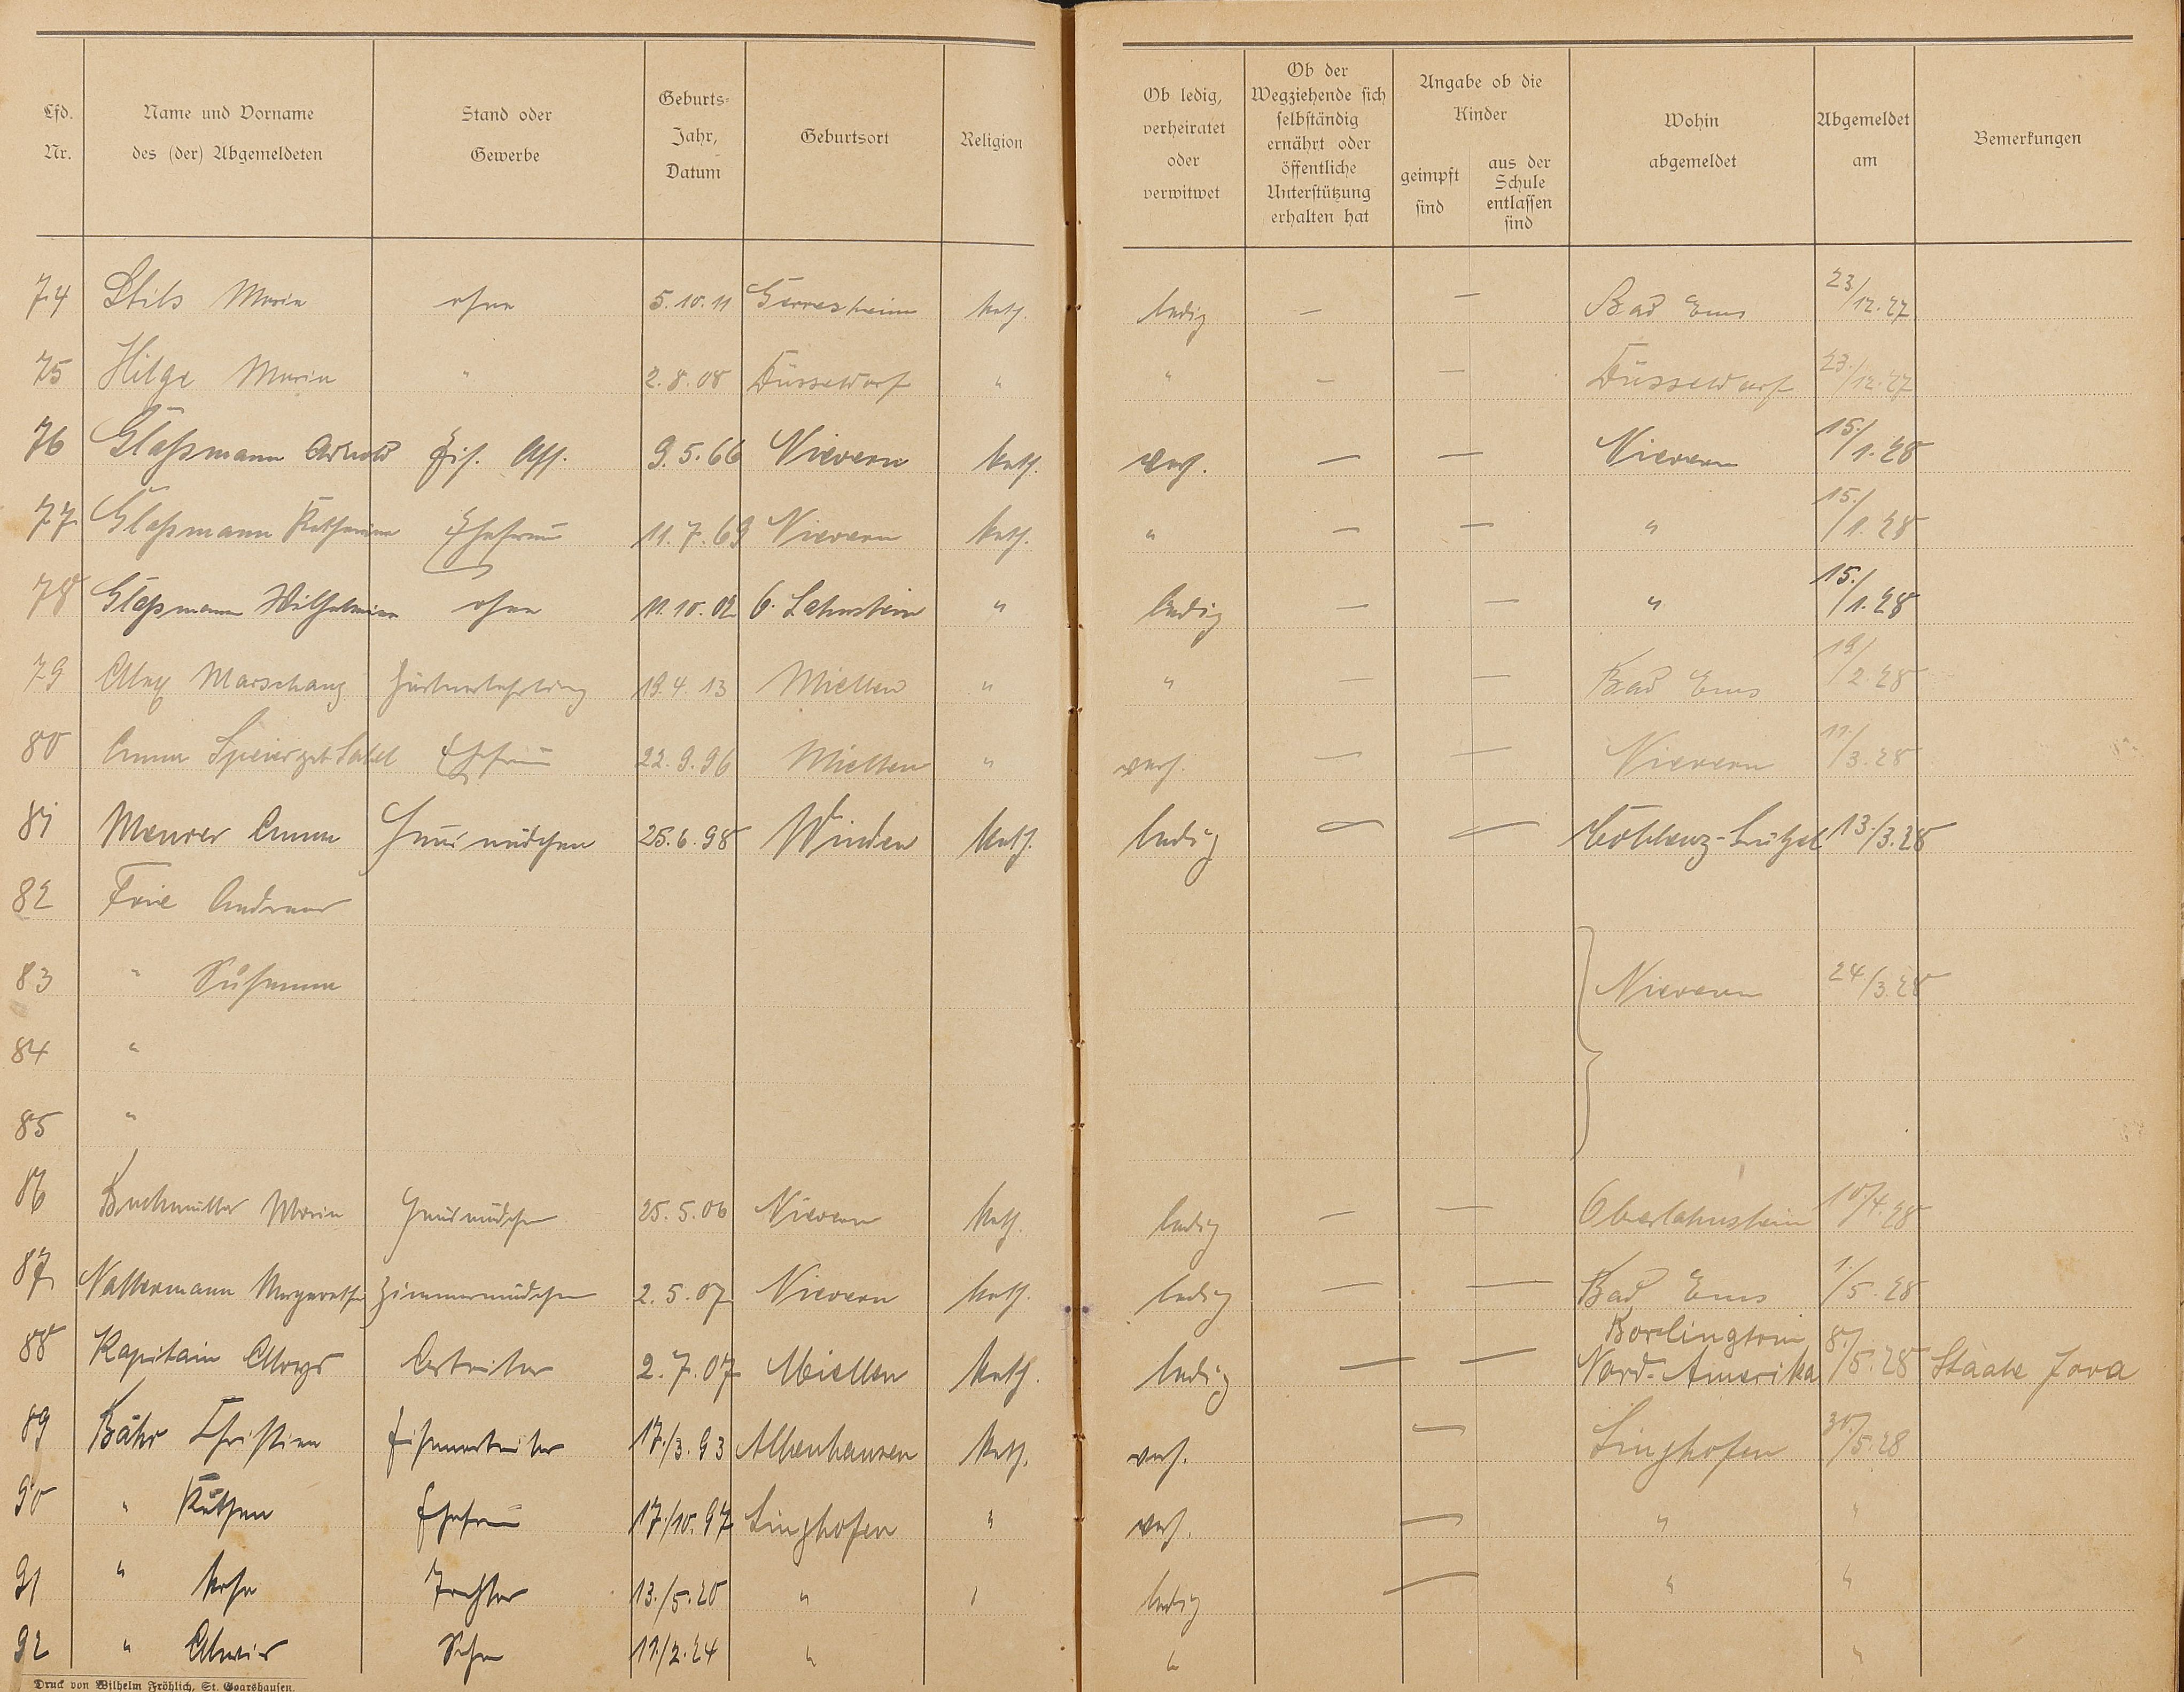 Lfd. Nr. | Name und Vorname des (der) Abgemeldeten | Stand oder Gewerbe | Geburts-Jahr, Datum | Geburtsort | Religion | Ob ledig, verheiratet oder verwitwet | Ob der Wegziehende sich selbständig ernährt oder öffentliche Unterstützung erhalten hat | Angabe ob die Kinder geimpft sind | aus der Schule entlassen sind | Wohin abgemeldet | Abgemeldet am | Bemerkungen
74 Maria ohne 5.10.11 Gerresheim kath. ledig — — Bad Ems 23/12.27
75 Hilge Maria " 2.8.08 Düsseldorf " " — — Düsseldorf 23./12.27
76 Glaßmann Arnold 9.5.66 Nievern kath. verh. — — Nievern 15./1.28
77 Glaßmann Katharina Ehefrau 11.7.69 Nievern kath. " — — " 15./1.28
78 Glaßmann Wilhelmina ohne 11.10.02 O. Lahnstein " ledig — — " 15./1.28
79 Marschang 19.4.13 Miellen " " — — Bad Ems 19/2.28
80 Anna Speier geb. Ehefrau 22.9.96 Miellen " verh. — — Nievern 11./3.28
81 Meurer Anna Hausmädchen 25.6.98 Winden kath. ledig — — Coblenz-Lützel 13./3.28
82 Andreas
83 " Susanna Nievern 24/3.28
84 "
85 "
86 Maria Hausmädchen 25.5.06 Nievern kath. ledig — — Oberlahnstein 10/4.28
87 Nattermann Margarethe Zimmermädchen 2.5.07 Nievern kath. ledig — — Bad Ems 1./5.28
88 Kapitain Aloys Arbeiter 2.7.07 Miellen kath. ledig — — Nord-Amerika 8./5.28 Staate Jova
89 Bähr Christian 17./3.93 kath. verh. — Singhofen 30/5.28
90 " Ehefrau 17./10.97 Singhofen " verh. — " "
91 " Tochter 13./5.20 " " ledig — " "
92 " Sohn 11./2.24 " " "
Druck von Wilhelm Fröhlich, St. Goarshausen.